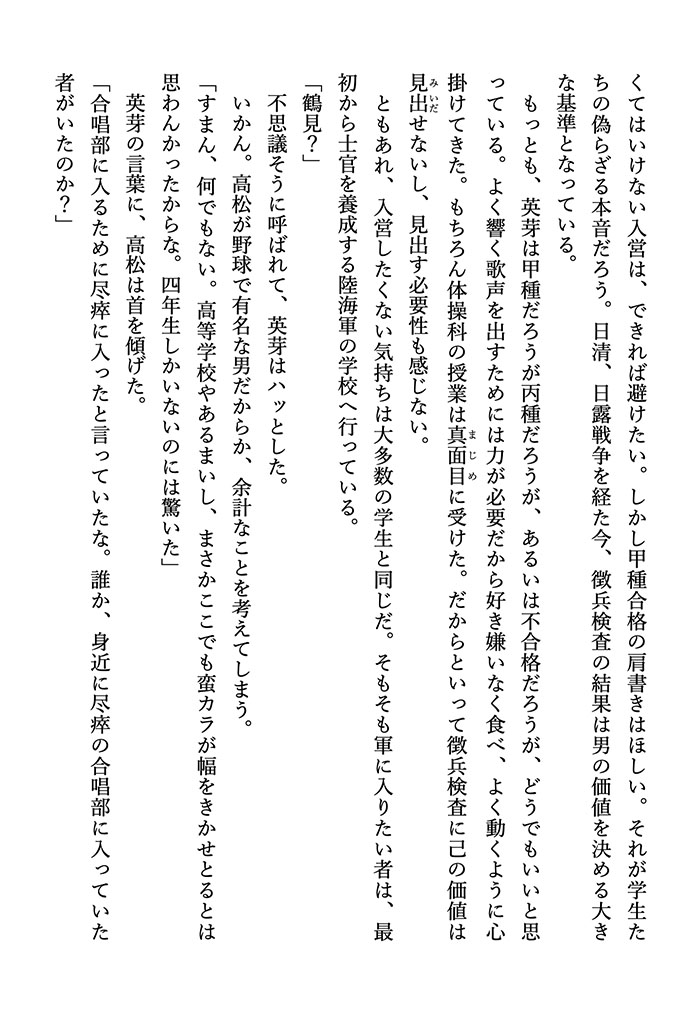 くてはいけない入営は、できれば避けたい。しかし甲種合格の肩書きはほしい。それが学生た
ちの偽らざる本音だろう。日清、日露戦争を経た今、徴兵検査の結果は男の価値を決める大き
な基準となっている。
もっとも、英芽は甲種だろうが丙種だろうが、あるいは不合格だろうが、どうでもいいと思
っている。よく響く歌声を出すためには力が必要だから好き嫌いなく食べ、よく動くように心
掛けてきた。もちろん体操科の授業は真面目に受けた。だからといって徴兵検査に己の価値は
見出せないし、見出す必要性も感じない。
ともあれ、入営したくない気持ちは大多数の学生と同じだ。そもそも軍に入りたい者は、最
初から士官を養成する陸海軍の学校へ行っている。
「鶴見？」
不思議そうに呼ばれて、英芽はハッとした。
いかん。高松が野球で有名な男だからか、余計なことを考えてしまう。
「すまん、何でもない。高等学校やあるまいし、まさかここでも蛮カラが幅をきかせとるとは
思わんかったからな。四年生しかいないのには驚いた」
英芽の言葉に、高松は首を傾げた。
「合唱部に入るために尽瘁に入ったと言っていたな。誰か、身近に尽瘁の合唱部に入っていた
者がいたのか？」